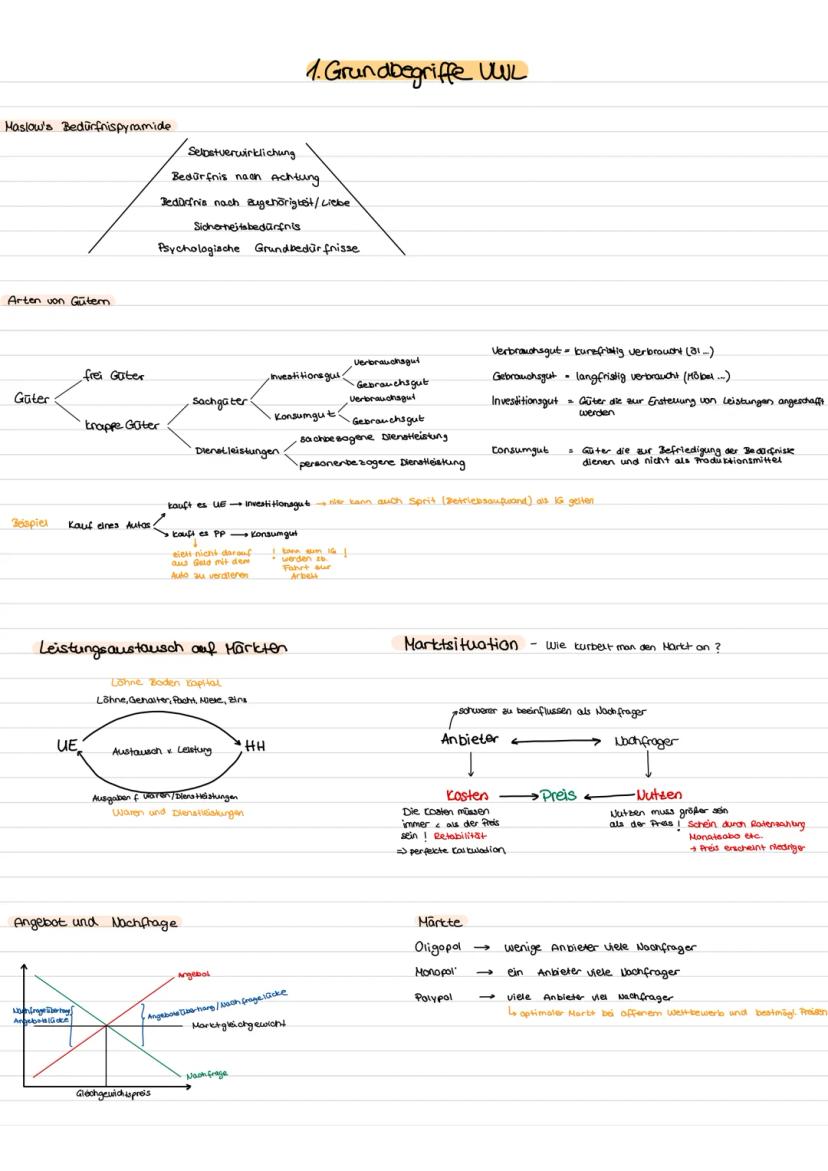 1. Grundbegriffe VWL
Maslow's Bedürfnispyramide
Selbstverwirklichung
Bedürfnis nach Achtung
Bedürfnis nach Zugehörigkeit/Liebe
Sicherheitsbedürfnis
Psychologische Grundbedürfnisse
Arten von Gütern
Güter
frei Güter
knappe Güter
Sachgüter
Dienstleistungen
Investitionsgut
Konsumgut
Verbrauchsgut
Gebrauchsgut
Verbrauchsgut
Gebrauchsgut
sachbezogene Dienstleistung
personenbezogene Dienstleistung
Verbrauchsgut = kurzfristig verbraucht (Öl ...)
Gebrauchsgut = langfristig verbraucht (Möbel ...)
Investitionsgut = Güter die zur Erstellung von Leistungen angeschafft
werden
Consumgut = Güter die zur Befriedigung der Bedürfnisse
dienen und nicht als Produktionsmittel
Beispiel Kauf eines Autos
kauft es UE → Investitionsgut → hier kann auch Sprit (Betriebsaufwand) als IG gelten
kauft es PP → Konsumgut
zielt nicht darauf
aus Geld mit dem
Auto zu verdienen
! kann zum IG !
werden zb.
Fahrt zur
Arbeit
Leistungsaustausch auf Märkten
Löhne Boden Kapital
Löhne, Gehälter, Pacht, Miete, Zins
UE Austausch v. Leistung HH
Ausgaben f. Waren/Dienstleistungen
Waren und Dienstleistungen
Marktsituation - Wie kurbelt man den Markt an ?
schwerer zu beeinflussen als Nachfrager
Anbieter ↔ Nachfrager
Kosten → Preis ← Nutzen
Die Kosten müssen
immer < als der Preis
sein ! Retabilität
=> perfekte Kalkulation
Nutzen muss größer sein
als der Preis ! Schein durch Ratenzahlung
Monatsabo etc.
→ Preis erscheint niedriger
Angebot und Nachfrage
Angebot
Nachfrageüberhang
Angebotslücke
Angebotsüberhang/Nachfragelücke
Marktgleichgewicht
Nachfrage
Gleichgewichtspreis
Märkte
Oligopol → wenige Anbieter viele Nachfrager
Monopol → ein Anbieter viele Nachfrager
Polypol → viele Anbieter viel Nachfrager
↳ optimaler Markt bei offenem Wettbewerb und bestmögl. Preisen